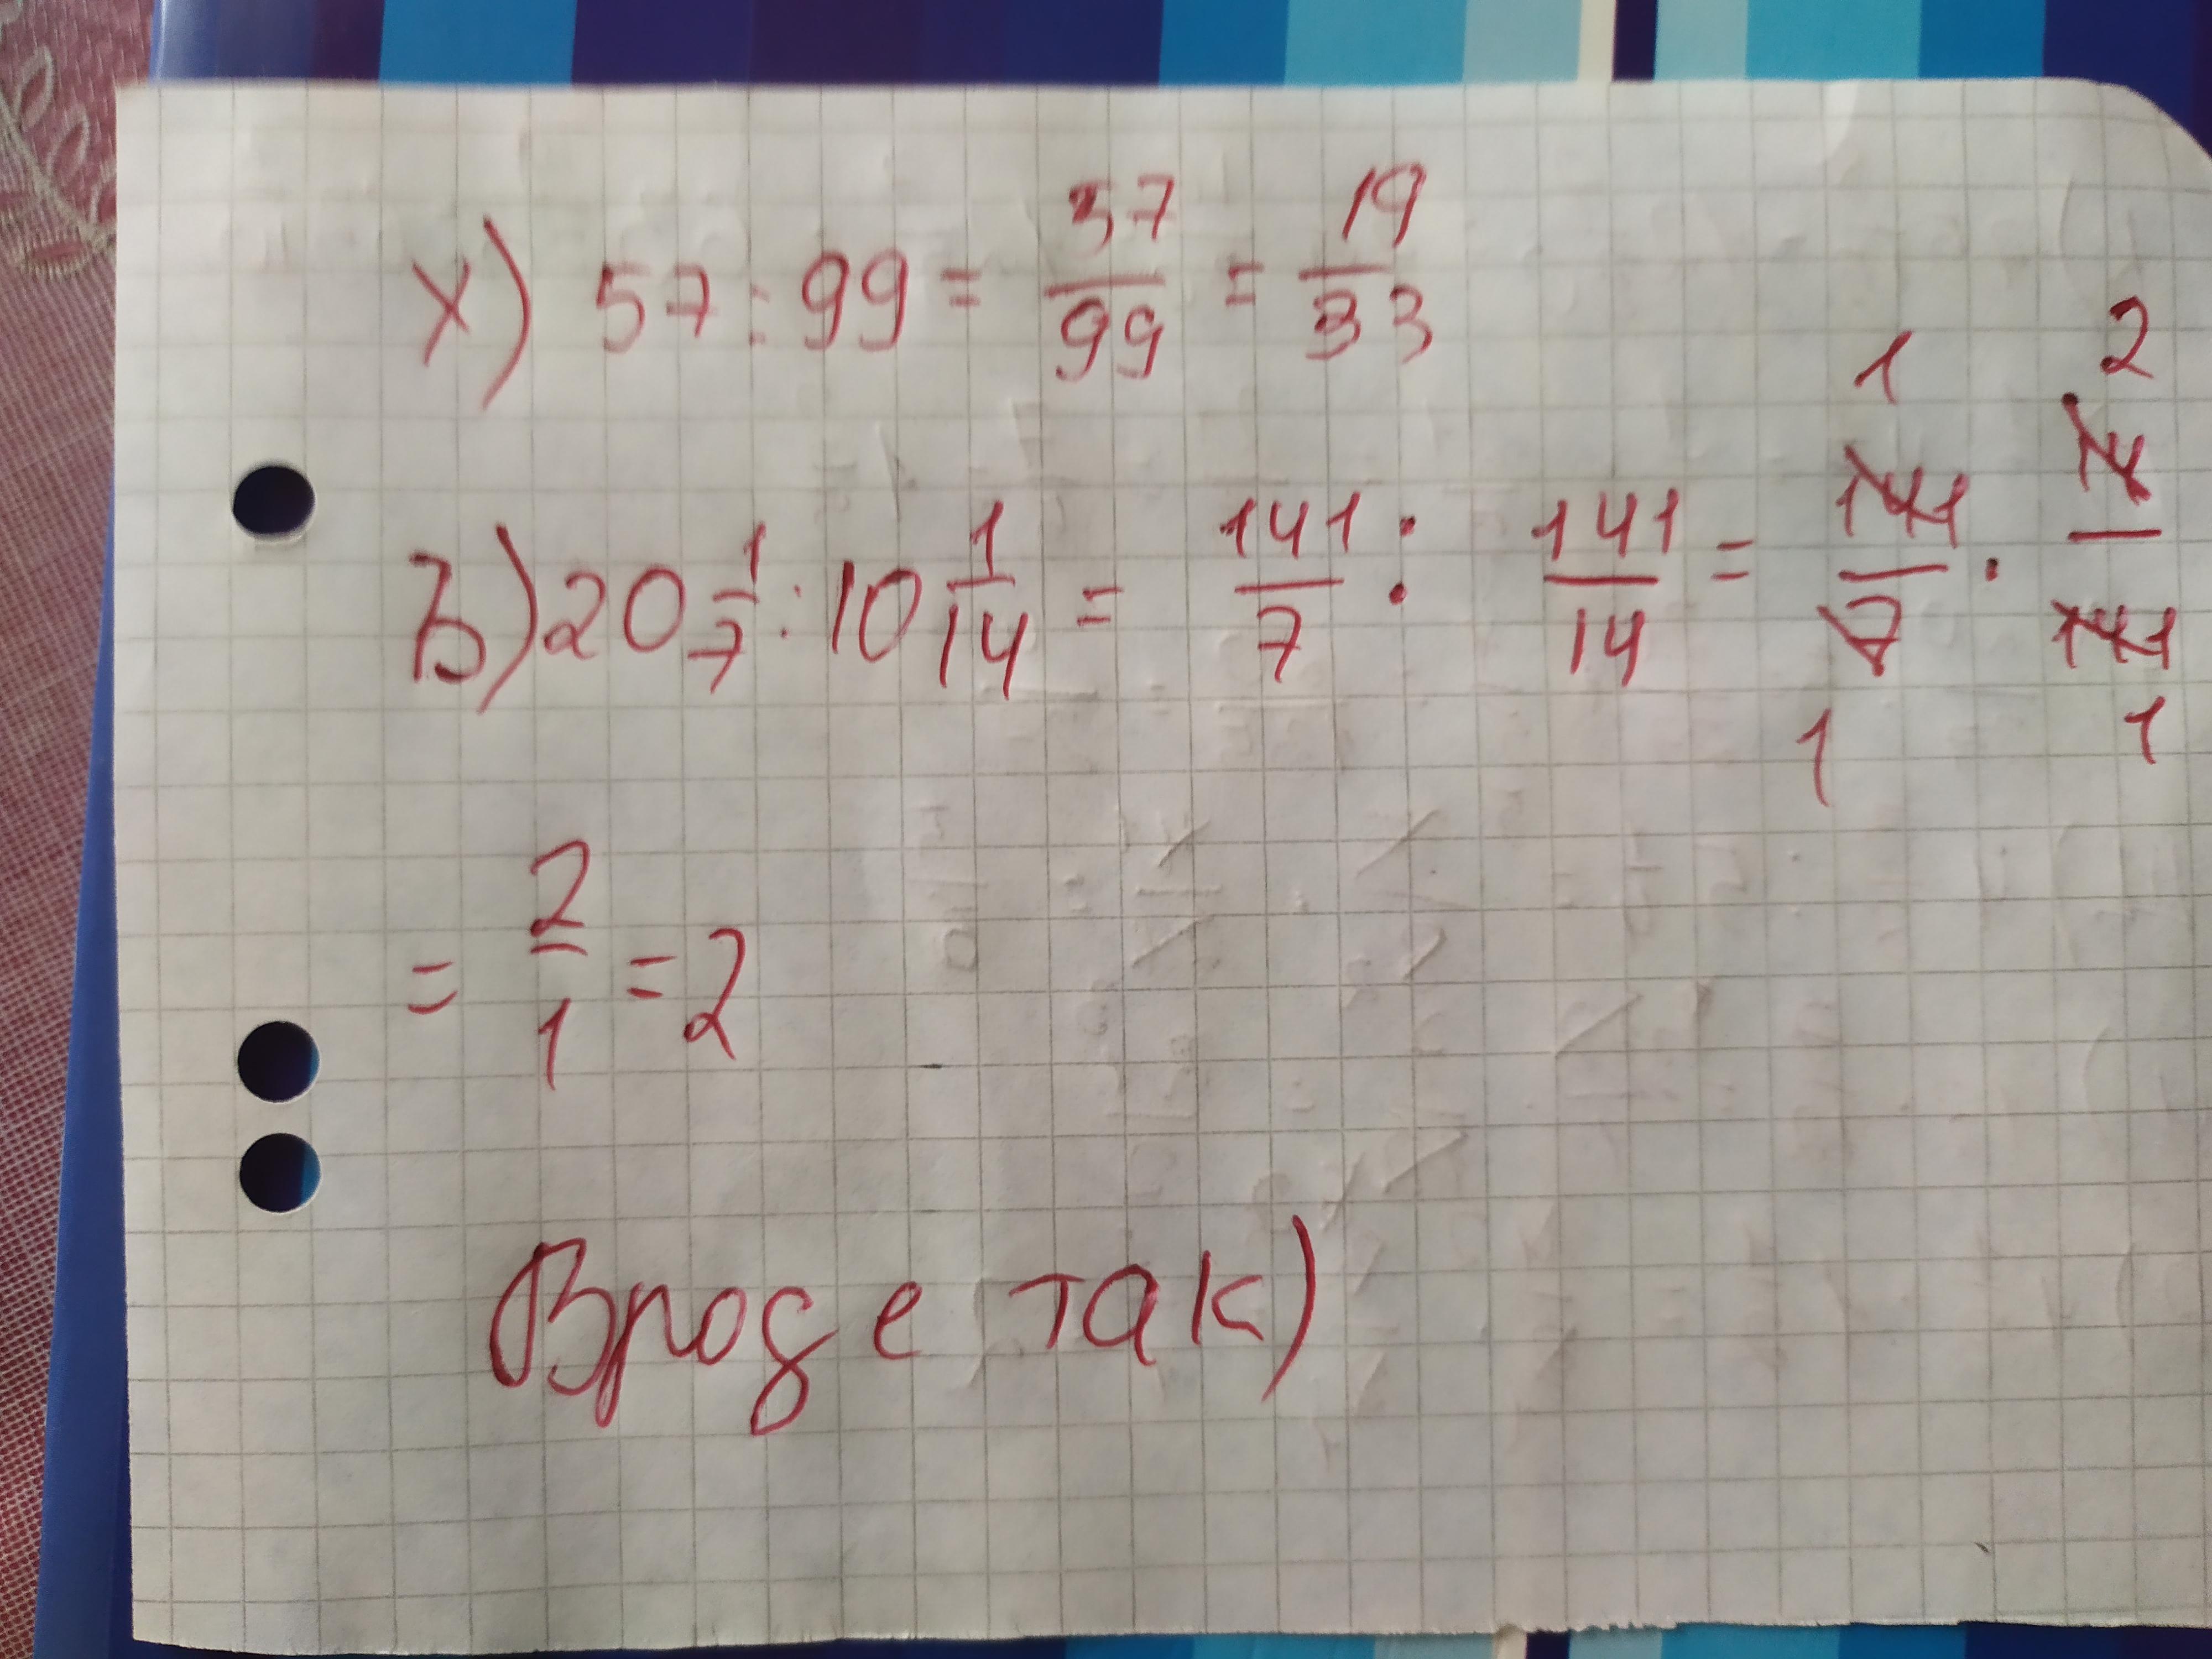 х) 57 : 99 = 57/99 = 19/33
Ъ) 20 1/7 : 10 1/14 = 141/7 : 141/14 = 141/7 1 1 · 14/141 2 1
= 2/1 = 2
Вроде так)